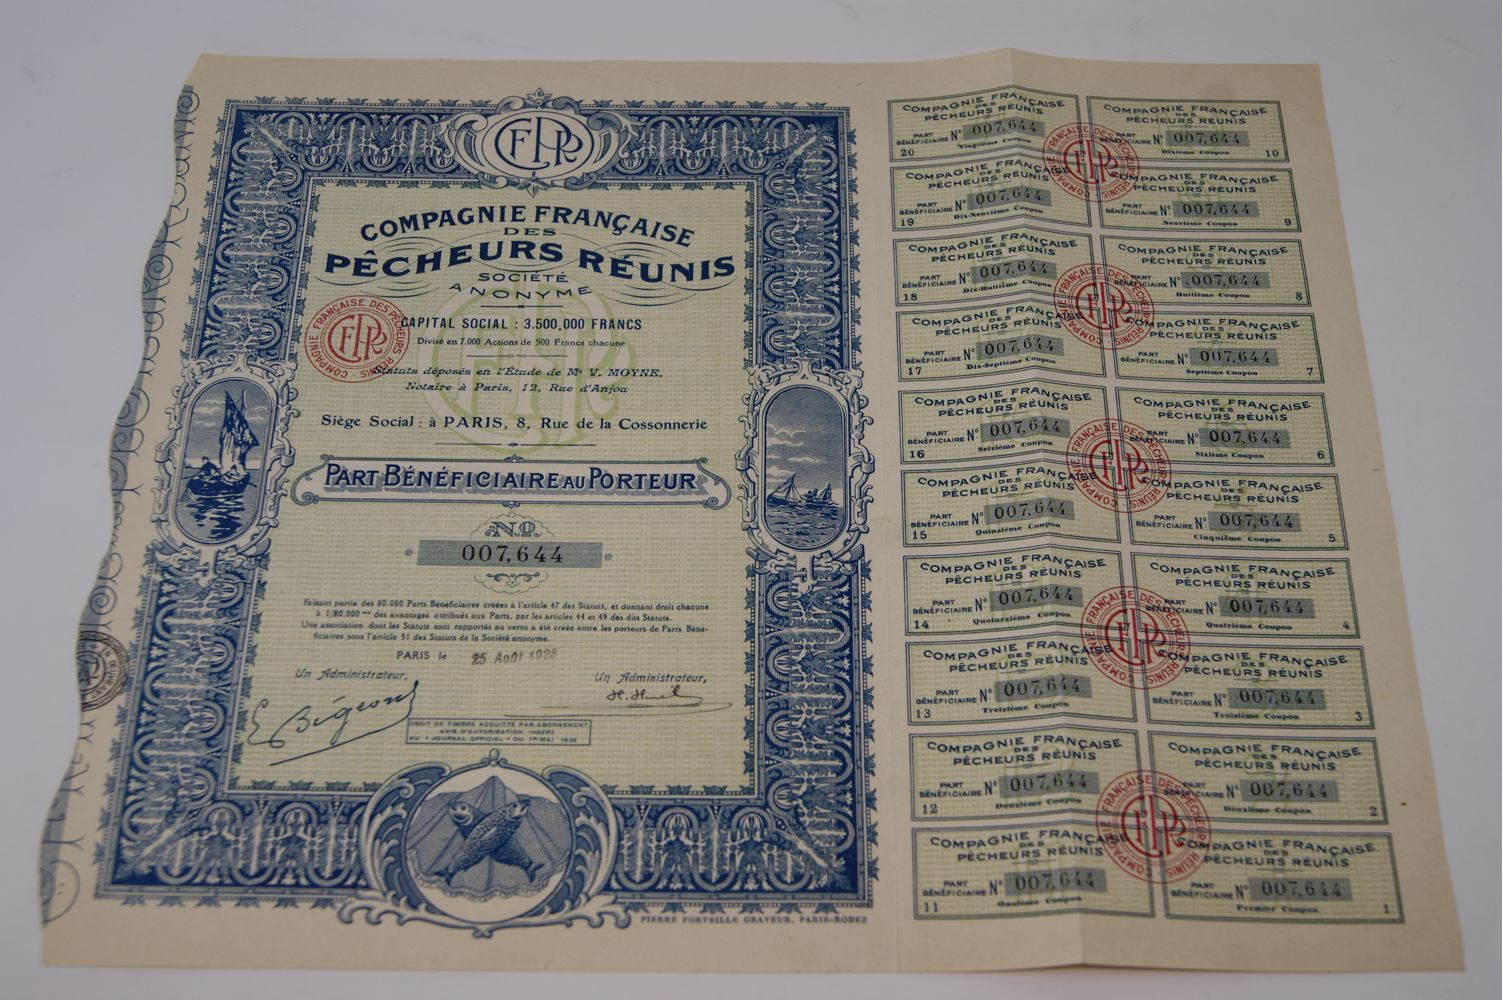 FPR
COMPAGNIE FRANÇAISE
DES
PÊCHEURS RÉUNIS
SOCIÉTÉ
ANONYME
CAPITAL SOCIAL : 3.500,000 FRANCS
Divisé en 7.000 Actions de 500 Francs chacune
Statuts déposés en l'Étude de Me V. MOYNE,
Notaire à Paris, 12, Rue d'Anjou
Siège Social : à PARIS, 8, Rue de la Cossonnerie
COMPAGNIE FRANÇAISE DES PÊCHEURS RÉUNIS
FPR
PART BÉNÉFICIAIRE AU PORTEUR
No
007,644
faisant partie des 80.000 Parts Bénéficiaires créées à l'article 47 des Statuts, et donnant droit chacune
à 1/80.000me des avantages attribués aux Parts, par les articles 44 et 49 des dits Statuts.
Une association dont les Statuts sont rapportés au verso a été créée entre les porteurs de Parts Béné-
ficiaires sous l'article 51 des Statuts de la Société anonyme.
PARIS le 25 Août 1928
Un Administrateur,
Un Administrateur,
E. Bigeon
DROIT DE TIMBRE ACQUITTÉ PAR ABONNEMENT
AVIS D'AUTORISATION INSÉRÉ
AU "JOURNAL OFFICIEL" DU 1er MAI 1926
PIERRE FORVEILLE GRAVEUR, PARIS-RODEZ
COMPAGNIE FRANÇAISE
DES
PÊCHEURS RÉUNIS
PART
BÉNÉFICIAIRE N° 007,644
20 Vingtième Coupon
COMPAGNIE FRANÇAISE
DES
PÊCHEURS RÉUNIS
PART
BÉNÉFICIAIRE N° 007,644
Dixième Coupon 10
COMPAGNIE FRANÇAISE DES PÊCHEURS RÉUNIS
FPR
COMPAGNIE FRANÇAISE
DES
PÊCHEURS RÉUNIS
PART
BÉNÉFICIAIRE N° 007,644
19 Dix-Neuvième Coupon
COMPAGNIE FRANÇAISE
DES
PÊCHEURS RÉUNIS
PART
BÉNÉFICIAIRE N° 007,644
Neuvième Coupon 9
COMPAGNIE FRANÇAISE
DES
PÊCHEURS RÉUNIS
PART
BÉNÉFICIAIRE N° 007,644
18 Dix-Huitième Coupon
COMPAGNIE FRANÇAISE
DES
PÊCHEURS RÉUNIS
PART
BÉNÉFICIAIRE N° 007,644
Huitième Coupon 8
COMPAGNIE FRANÇAISE DES PÊCHEURS RÉUNIS
FPR
COMPAGNIE FRANÇAISE
DES
PÊCHEURS RÉUNIS
PART
BÉNÉFICIAIRE N° 007,644
17 Dix-Septième Coupon
COMPAGNIE FRANÇAISE
DES
PÊCHEURS RÉUNIS
PART
BÉNÉFICIAIRE N° 007,644
Septième Coupon 7
COMPAGNIE FRANÇAISE
DES
PÊCHEURS RÉUNIS
PART
BÉNÉFICIAIRE N° 007,644
16 Seizième Coupon
COMPAGNIE FRANÇAISE
DES
PÊCHEURS RÉUNIS
PART
BÉNÉFICIAIRE N° 007,644
Sixième Coupon 6
COMPAGNIE FRANÇAISE DES PÊCHEURS RÉUNIS
FPR
COMPAGNIE FRANÇAISE
DES
PÊCHEURS RÉUNIS
PART
BÉNÉFICIAIRE N° 007,644
15 Quinzième Coupon
COMPAGNIE FRANÇAISE
DES
PÊCHEURS RÉUNIS
PART
BÉNÉFICIAIRE N° 007,644
Cinquième Coupon 5
COMPAGNIE FRANÇAISE
DES
PÊCHEURS RÉUNIS
PART
BÉNÉFICIAIRE N° 007,644
14 Quatorzième Coupon
COMPAGNIE FRANÇAISE
DES
PÊCHEURS RÉUNIS
PART
BÉNÉFICIAIRE N° 007,644
Quatrième Coupon 4
COMPAGNIE FRANÇAISE DES PÊCHEURS RÉUNIS
FPR
COMPAGNIE FRANÇAISE
DES
PÊCHEURS RÉUNIS
PART
BÉNÉFICIAIRE N° 007,644
13 Treizième Coupon
COMPAGNIE FRANÇAISE
DES
PÊCHEURS RÉUNIS
PART
BÉNÉFICIAIRE N° 007,644
Troisième Coupon 3
COMPAGNIE FRANÇAISE
DES
PÊCHEURS RÉUNIS
PART
BÉNÉFICIAIRE N° 007,644
12 Douzième Coupon
COMPAGNIE FRANÇAISE
DES
PÊCHEURS RÉUNIS
PART
BÉNÉFICIAIRE N° 007,644
Deuxième Coupon 2
COMPAGNIE FRANÇAISE DES PÊCHEURS RÉUNIS
FPR
COMPAGNIE FRANÇAISE
DES
PÊCHEURS RÉUNIS
PART
BÉNÉFICIAIRE N° 007,644
11 Onzième Coupon
COMPAGNIE FRANÇAISE
DES
PÊCHEURS RÉUNIS
PART
BÉNÉFICIAIRE N° 007,644
Premier Coupon 1